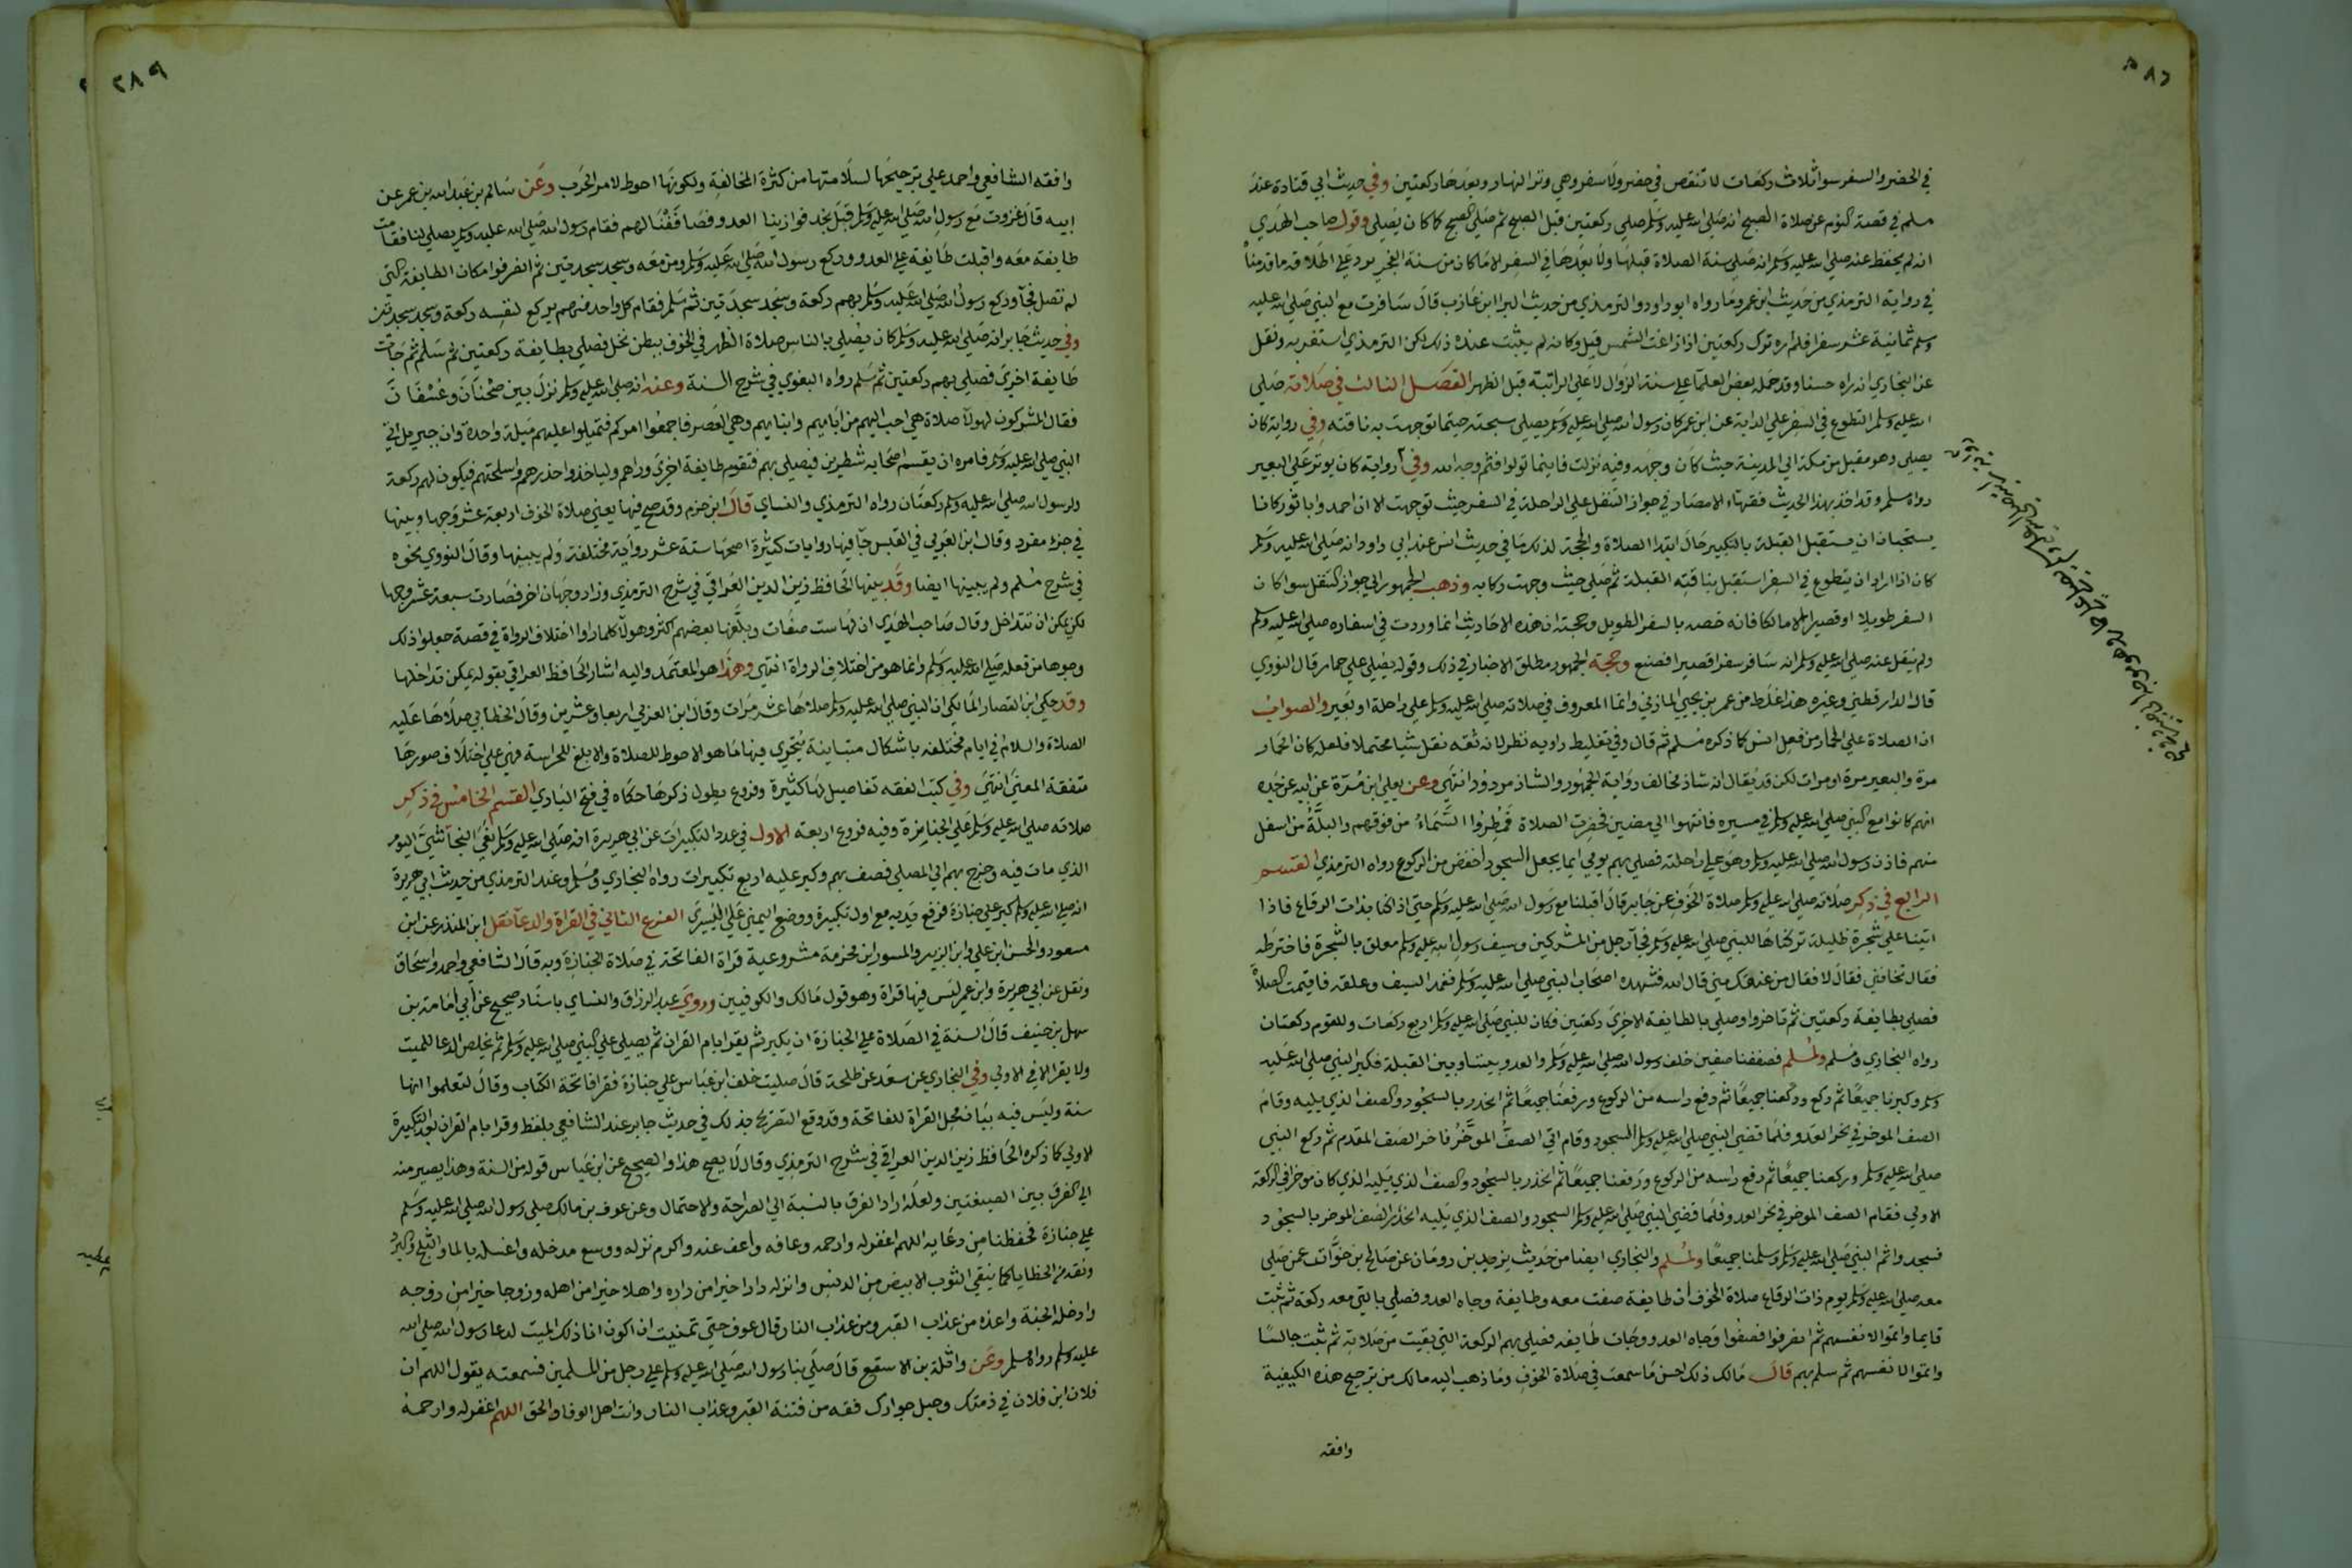 في الحضر والسفر سوا ثلاث ركعات لا تنقص في حضر ولا سفر وهي وتر النهار وبعدها ركعتين وفي حديث ابي قتادة عند
مسلم في قصة النوم عن صلاة الصبح انه صلى الله عليه وسلم صلى ركعتين قبل الصبح ثم صلى الصبح كما كان يصلي وقول صاحب الهدي
انه لم يحفظ عنه صلى الله عليه وسلم انه صلى سنة الصلاة قبلها ولا بعدها في السفر الا ما كان من سنة الفجر يرد على اطلاقه ما قدمناه
في رواية الترمذي من حديث ابن عمر وما رواه ابو داود والترمذي من حديث البرا ابن عازب قال سافرت مع النبي صلى الله عليه
وسلم ثمانية عشر سفرا فلم اره ترك ركعتين اذا زاغت الشمس قبل وكانه لم يثبت عنده ذلك لكن الترمذي استغربه ونقل
عن البخاري انه راه حسنا وقد حمله بعض العلما على سنة الزوال لا على الراتبة قبل الظهر الفصل الثالث في صلاته صلى
الله عليه وسلم التطوع في السفر على الدابة عن ابن عمر كان رسول الله صلى الله عليه وسلم يصلي سبحته حيثما توجهت به ناقته وفي رواية كان
يصلي وهو مقبل من مكة الى المدينة حيث كان وجهه وفيه نزلت فاينما تولوا فثم وجه الله وفي رواية كان يوتر على البعير
رواه مسلم وقد اخذ بهذا الحديث فقهاء الامصار في جواز التنفل على الراحلة في السفر حيث توجهت الا ان احمد وابا ثور كانا
يستحبان ان يستقبل القبلة بالتكبير حال ابتدا الصلاة والحجة لذلك ما في حديث انس عند ابي داود انه صلى الله عليه وسلم
كان اذا اراد ان يتطوع في السفر استقبل بناقته القبلة ثم صلى حيث وجهت ركابه وذهب الجمهور الى جواز التنفل سوا كان
السفر طويلا او قصيرا الا مالكا فانه خصه بالسفر الطويل وحجته ان هذه الاحاديث انما وردت في اسفاره صلى الله عليه وسلم
ولم ينقل عنه صلى الله عليه وسلم انه سافر سفرا قصيرا فصنع وحجة الجمهور مطلق الاخبار في ذلك وقوله يصلي على حمار قال النووي
قال الدارقطني وغيره هذا غلط من عمر بن يحيى المازني وانما المعروف في صلاته صلى الله عليه وسلم على راحلة او بعير والصواب
ان الصلاة على الحمار من فعل انس كما ذكره مسلم ثم قال وفي تغليط راويه نظر لانه ثقة نقل شيا محتملا فلعله كان الحمار
مرة والبعير مرة او مرات لكن قد يقال انه شاذ مخالف رواية الجمهور والشاذ مردود انتهى وعن يعلى ابن مرة عن ابيه عن جده
انهم كانوا مع النبي صلى الله عليه وسلم في مسيره فانتهوا الى مضيق فحضرت الصلاة فمطروا السماء من فوقهم والبلة من اسفل
منهم فاذن رسول الله صلى الله عليه وسلم وهو على راحلته فصلى بهم يومي ايما يجعل السجود اخفض من الركوع رواه الترمذي القسم
الرابع في ذكر صلاته صلى الله عليه وسلم صلاة الخوف عن جابر قال اقبلنا مع رسول الله صلى الله عليه وسلم حتى اذا كنا بذات الرقاع فاذا
اتينا على شجرة ظليلة تركناها للنبي صلى الله عليه وسلم فجآ رجل من المشركين وسيف رسول الله عليه وسلم معلق بالشجرة فاخترطه
فقال تخافني فقال لا فقال من يمنعك مني قال الله فتهدده اصحاب النبي صلى الله عليه وسلم فغمد السيف وعلقه فاقيمت الصلاة
فصلى بطايفة ركعتين ثم تاخروا وصلى بالطايفة الاخرى ركعتين فكان للنبي صلى الله عليه وسلم اربع ركعات وللقوم ركعتان
رواه البخاري ومسلم ولمسلم فصففنا صفين خلف رسول الله صلى الله عليه وسلم والعدو بيننا وبين القبلة فكبر النبي صلى الله عليه
وسلم وكبرنا جميعا ثم ركع وركعنا جميعا ثم رفع راسه من الركوع ورفعنا جميعا ثم انحدر بالسجود والصف الذي يليه وقام
الصف الموخر في نحر العدو فلما قضى النبي صلى الله عليه وسلم السجود وقام اتى الصف المؤخر فاخر الصف المقدم ثم ركع النبي
صلى الله عليه وسلم وركعنا جميعا ثم رفع راسه من الركوع ورفعنا جميعا ثم انحدر بالسجود والصف الذي يليه الذي كان موخرا في الركعة
الاولى فقام الصف الموخر في نحر العدو فلما قضى النبي صلى الله عليه وسلم السجود والصف الذي يليه انحدر الصف الموخر بالسجود
فسجدوا ثم النبي صلى الله عليه وسلم وسلمنا جميعا ولمسلم والبخاري ايضا من حديث يزيد بن رومان عن صالح بن خوات عمن صلى
معه صلى الله عليه وسلم يوم ذات الرقاع صلاة الخوف ان طايفة صفت معه وطايفة وجاه العدو فصلى بالتي معه ركعة ثم ثبت
قايما واتموا لانفسهم ثم انصرفوا فصفوا وجاه العدو وجات طايفه فصلى بهم الركعة التي بقيت من صلاته ثم ثبت جالسا
واتموا لانفسهم ثم سلم بهم قال مالك ذلك احسن ما سمعت في صلاة الخوف وما ذهب اليه مالك من ترجيح هذه الكيفية
وافقه
٢٨٩
وافقه الشافعي واحمد على ترجيحها لسلامتها من كثرة المخالفة ولكونها احوط لامر الحرب وعن سالم بن عبد الله بن عمر عن
ابيه قال غزوت مع رسول الله صلى الله عليه وسلم قبل نجد فوازينا العدو فصاففنا لهم فقام رسول الله صلى الله عليه وسلم يصلي لنا فقامت
طايفة معه واقبلت طايفة على العدو وركع رسول الله صلى الله عليه وسلم ومن معه وسجد سجدتين ثم انصرفوا مكان الطايفة التي
لم تصل فجآ وركع رسول الله صلى الله عليه وسلم بهم ركعة وسجد سجدتين ثم سلم فقام كل واحد منهم يركع لنفسه ركعة وسجد سجدتين
وفي حديث جابر انه صلى الله عليه وسلم كان يصلي بالناس صلاة الظهر في الخوف ببطن نخل فصلى بطايفة ركعتين ثم سلم ثم جات
طايفة اخرى فصلى بهم ركعتين ثم سلم رواه البغوي في شرح السنة وعنه انه صلى الله عليه وسلم نزل بين ضجنان وعسفان
فقال المشركون لهولآ صلاة هي احب اليهم من ابايهم وابنايهم وهي العصر فاجمعوا امركم فتميلوا عليهم ميلة واحدة وان جبريل اتى
النبي صلى الله عليه وسلم فامره ان يقسم اصحابه شطرين فيصلي بهم فتقوم طايفة اخرى وراهم ولياخذوا حذرهم واسلحتهم فيكون لهم ركعة
ولرسول الله صلى الله عليه وسلم ركعتان رواه الترمذي والنساي قال ابن حزم وقد صح فيها يعني صلاة الخوف اربعة عشر وجها وبينها
في جزء مفرد وقال ابن العربي في القبس جآ فيها روايات كثيرة اصحها ستة عشر رواية مختلفة ولم يبينها وقال النووي نحوه
في شرح مسلم ولم يبينها ايضا وقد بينها الحافظ زين الدين العراقي في شرح الترمذي وزاد وجهان اخر فصارت سبعة عشر وجها
لكن يمكن ان تتداخل وقال صاحب الهدي ان لها ست صفات وبلغها بعضهم اكثر وهولآ كلما راوا اختلاف الرواة في قصة جعلوا ذلك
وجوها من فعله صلى الله عليه وسلم وانما هو من اختلاف الرواة انتهى وهذا هو المعتمد واليه اشار الحافظ العراقي بقوله يمكن تداخلها
وقد حكى ابن القصار المالكي ان النبي صلى الله عليه وسلم صلاها عشر مرات وقال ابن العربي اربعا وعشرين وقال الخطابي صلاها عليه
الصلاة والسلام في ايام مختلفة باشكال متباينة يتحرى فيها ما هو الاحوط للصلاة والابلغ للحراسة فهي على اختلاف صورها
متفقة المعنى انتهى وفي كتب الفقه تفاصيل لها كثيرة وفروع يطول ذكرها حكاه في فتح الباري القسم الخامس في ذكر
صلاته صلى الله عليه وسلم على الجنايزة وفيه فروع اربعة الاول في عدد التكبيرات عن ابي هريرة انه صلى الله عليه وسلم نعى النجاشي اليوم
الذي مات فيه وخرج بهم الى المصلى فصف بهم وكبر عليه اربع تكبيرات رواه البخاري ومسلم وعند الترمذي من حديث ابي هريرة
انه صلى الله عليه وسلم كبر على جنازة فرفع يديه مع اول تكبيرة ووضع اليمنى على اليسرى الفرع الثاني في القراة والدعآ نقل ابن المنذر عن ابن
مسعود والحسن ابن علي وابن الزبير والمسور ابن مخرمة مشروعية قراة الفاتحة في صلاة الجنازة وبه قال الشافعي واحمد واسحاق
ونقل عن ابي هريرة وابن عمر ليس فيها قراة وهو قول مالك والكوفيين وروى عبد الرزاق والنساي باسناد صحيح عن ابي امامة بن
سهل بن حنيف قال السنة في الصلاة على الجنازة ان يكبر ثم يقرا بام القران ثم يصلي على النبي صلى الله عليه وسلم ثم يخلص الدعا للميت
ولا يقرا الا في الاولى وفي البخاري عن سعد عن طلحة قال صليت خلف ابن عباس على جنازة فقرا فاتحة الكتاب وقال لتعلموا انها
سنة وليس فيه بيان محل القراة للفاتحة وقد وقع التصريح بذلك في حديث جابر عند الشافعي بلفظ وقرا بام القران بعد التكبيرة
الاولى كما ذكره الحافظ زين الدين العراقي في شرح الترمذي وقال لا يصح هذا والصحيح عن ابن عباس قوله من السنة وهذا يصير منه
الى الفرق بين الصيغتين ولعله اراد الفرق بالنسبة الى الصراحة والاحتمال وعن عوف بن مالك صلى رسول الله صلى الله عليه وسلم
على جنازة فحفظنا من دعايه اللهم اغفر له وارحمه وعافه واعف عنه واكرم نزله ووسع مدخله واغسله بالما والثلج والبرد
ونقه من الخطايا كما ينقى الثوب الابيض من الدنس وانزله دارا خيرا من داره واهلا خيرا من اهله وزوجا خيرا من زوجه
وادخله الجنة واعذه من عذاب القبر ومن عذاب النار قال عوف حتى تمنيت ان اكون انا ذلك الميت لدعا رسول الله صلى الله
عليه وسلم رواه مسلم وعن واثلة بن الاسقع قال صلى بنا رسول الله صلى الله عليه وسلم على رجل من المسلمين فسمعته يقول اللهم ان
فلان ابن فلان في ذمتك وحبل جوارك فقه من فتنة القبر وعذاب النار وانت اهل الوفا والحق اللهم اغفر له وارحمه